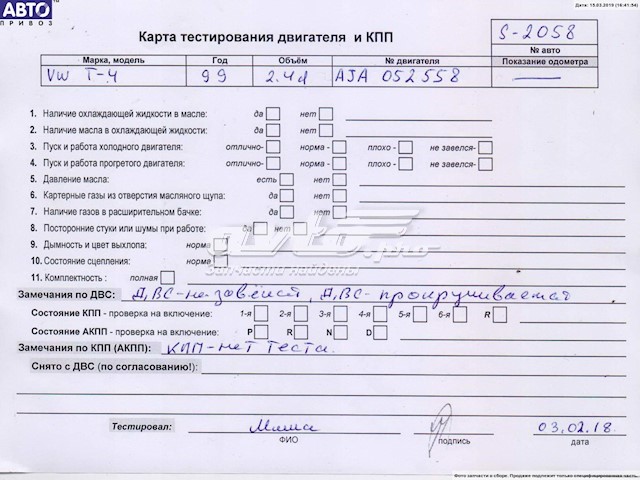 АВТО
ПРИВОЗ
Дата: 15.03.2019 (16:41:54)
Карта тестирования двигателя и КПП
S-2058
№ авто
Марка, модель Год Объём № двигателя Показание одометра
VW T-4 99 2.4d AJA 052558 —
1. Наличие охлаждающей жидкости в масле: да нет
2. Наличие масла в охлаждающей жидкости: да нет
3. Пуск и работа холодного двигателя: отлично- норма - плохо - не завелся-
4. Пуск и работа прогретого двигателя: отлично- норма - плохо - не завелся-
5. Давление масла: есть нет
6. Картерные газы из отверстия масляного щупа: да нет
7. Наличие газов в расширительном бачке: да нет
8. Посторонние стуки или шумы при работе: да нет
9. Дымность и цвет выхлопа: норма
10. Состояние сцепления: норма
11. Комплектность : полная
Запчасти найдены
Замечания по ДВС: ДВС-не завёлся, ДВС-прокручивается
Состояние КПП - проверка на включение: 1-я 2-я 3-я 4-я 5-я 6-я R
Состояние АКПП - проверка на включение: P R N D
Замечания по КПП (АКПП): КПП-нет теста.
Снято с ДВС (по согласованию!):
Тестировал: 03.02.18
ФИО подпись дата
Фото запчасти в сборе. Продаже подлежит только специфицированная часть.